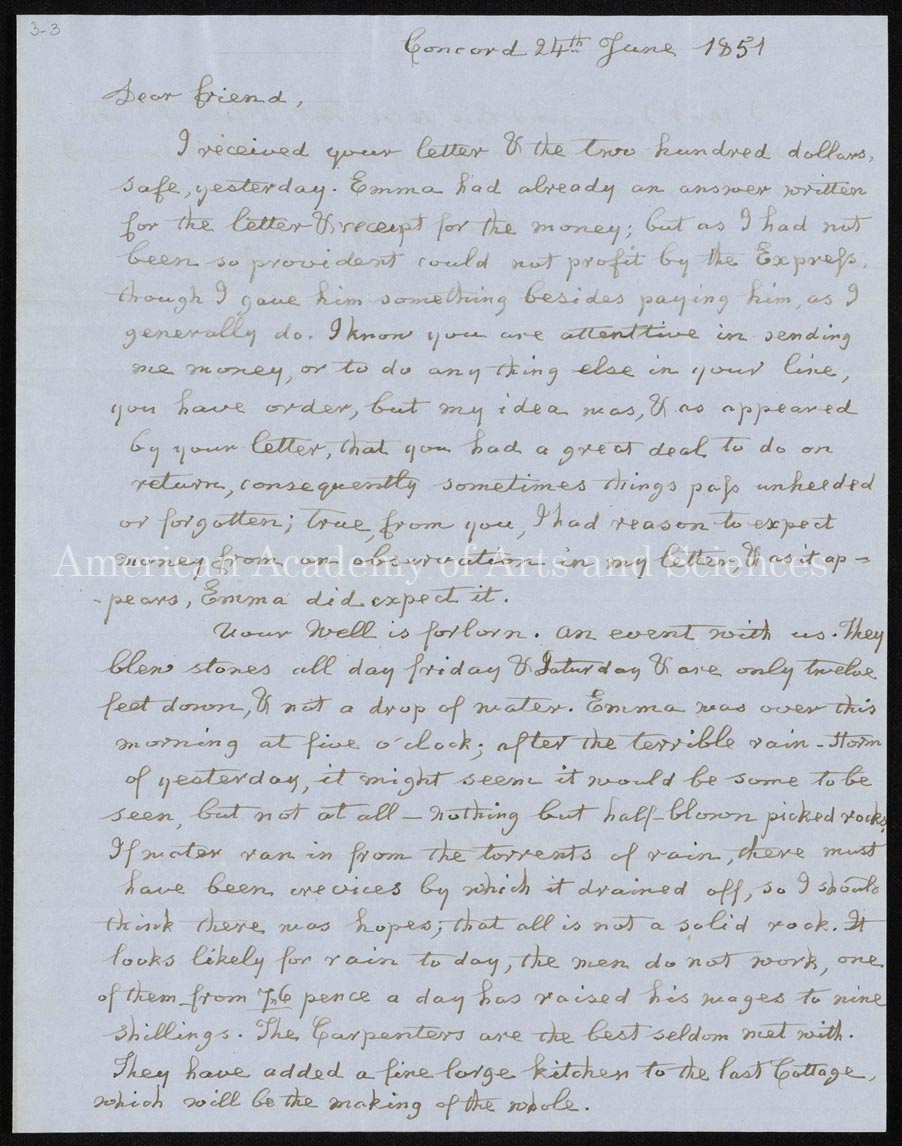 3-3
Concord 24th June 1851
Dear friend,
I received your letter & the two hundred dollars,
safe, yesterday. Emma had already an answer written
for the letter & receipt for the money; but as I had not
been so provident could not profit by the Express,
though I gave him something besides paying him, as I
generally do. I know you are attenttive in sending
me money, or to do any thing else in your line,
you have order, but my idea was, & as appeared
by your letter, that you had a great deal to do on
return, consequently sometimes things pass unheeded
or forgotten; true, from you, I had reason to expect
money from an observation in my letter, & as it ap=
American Academy of Arts and Sciences
-pears, Emma did expect it.
Your Well is forlorn. an event with us. They
blew stones all day friday & Saturday & are only twelve
feet down, & not a drop of water. Emma was over this
morning at five o'clock; after the terrible rain-storm
of yesterday, it might seem it would be some to be
seen, but not at all — nothing but half-blown picked rocks.
If water ran in from the torrents of rain, there must
have been crevices by which it drained off, so I should
think there was hopes; that all is not a solid rock. It
looks likely for rain to day, the men do not work, one
of them from 7/6 pence a day has raised his wages to nine
shillings. The Carpenters are the best seldom met with.
They have added a fine large kitchen to the last Cottage,
which will be the making of the whole.